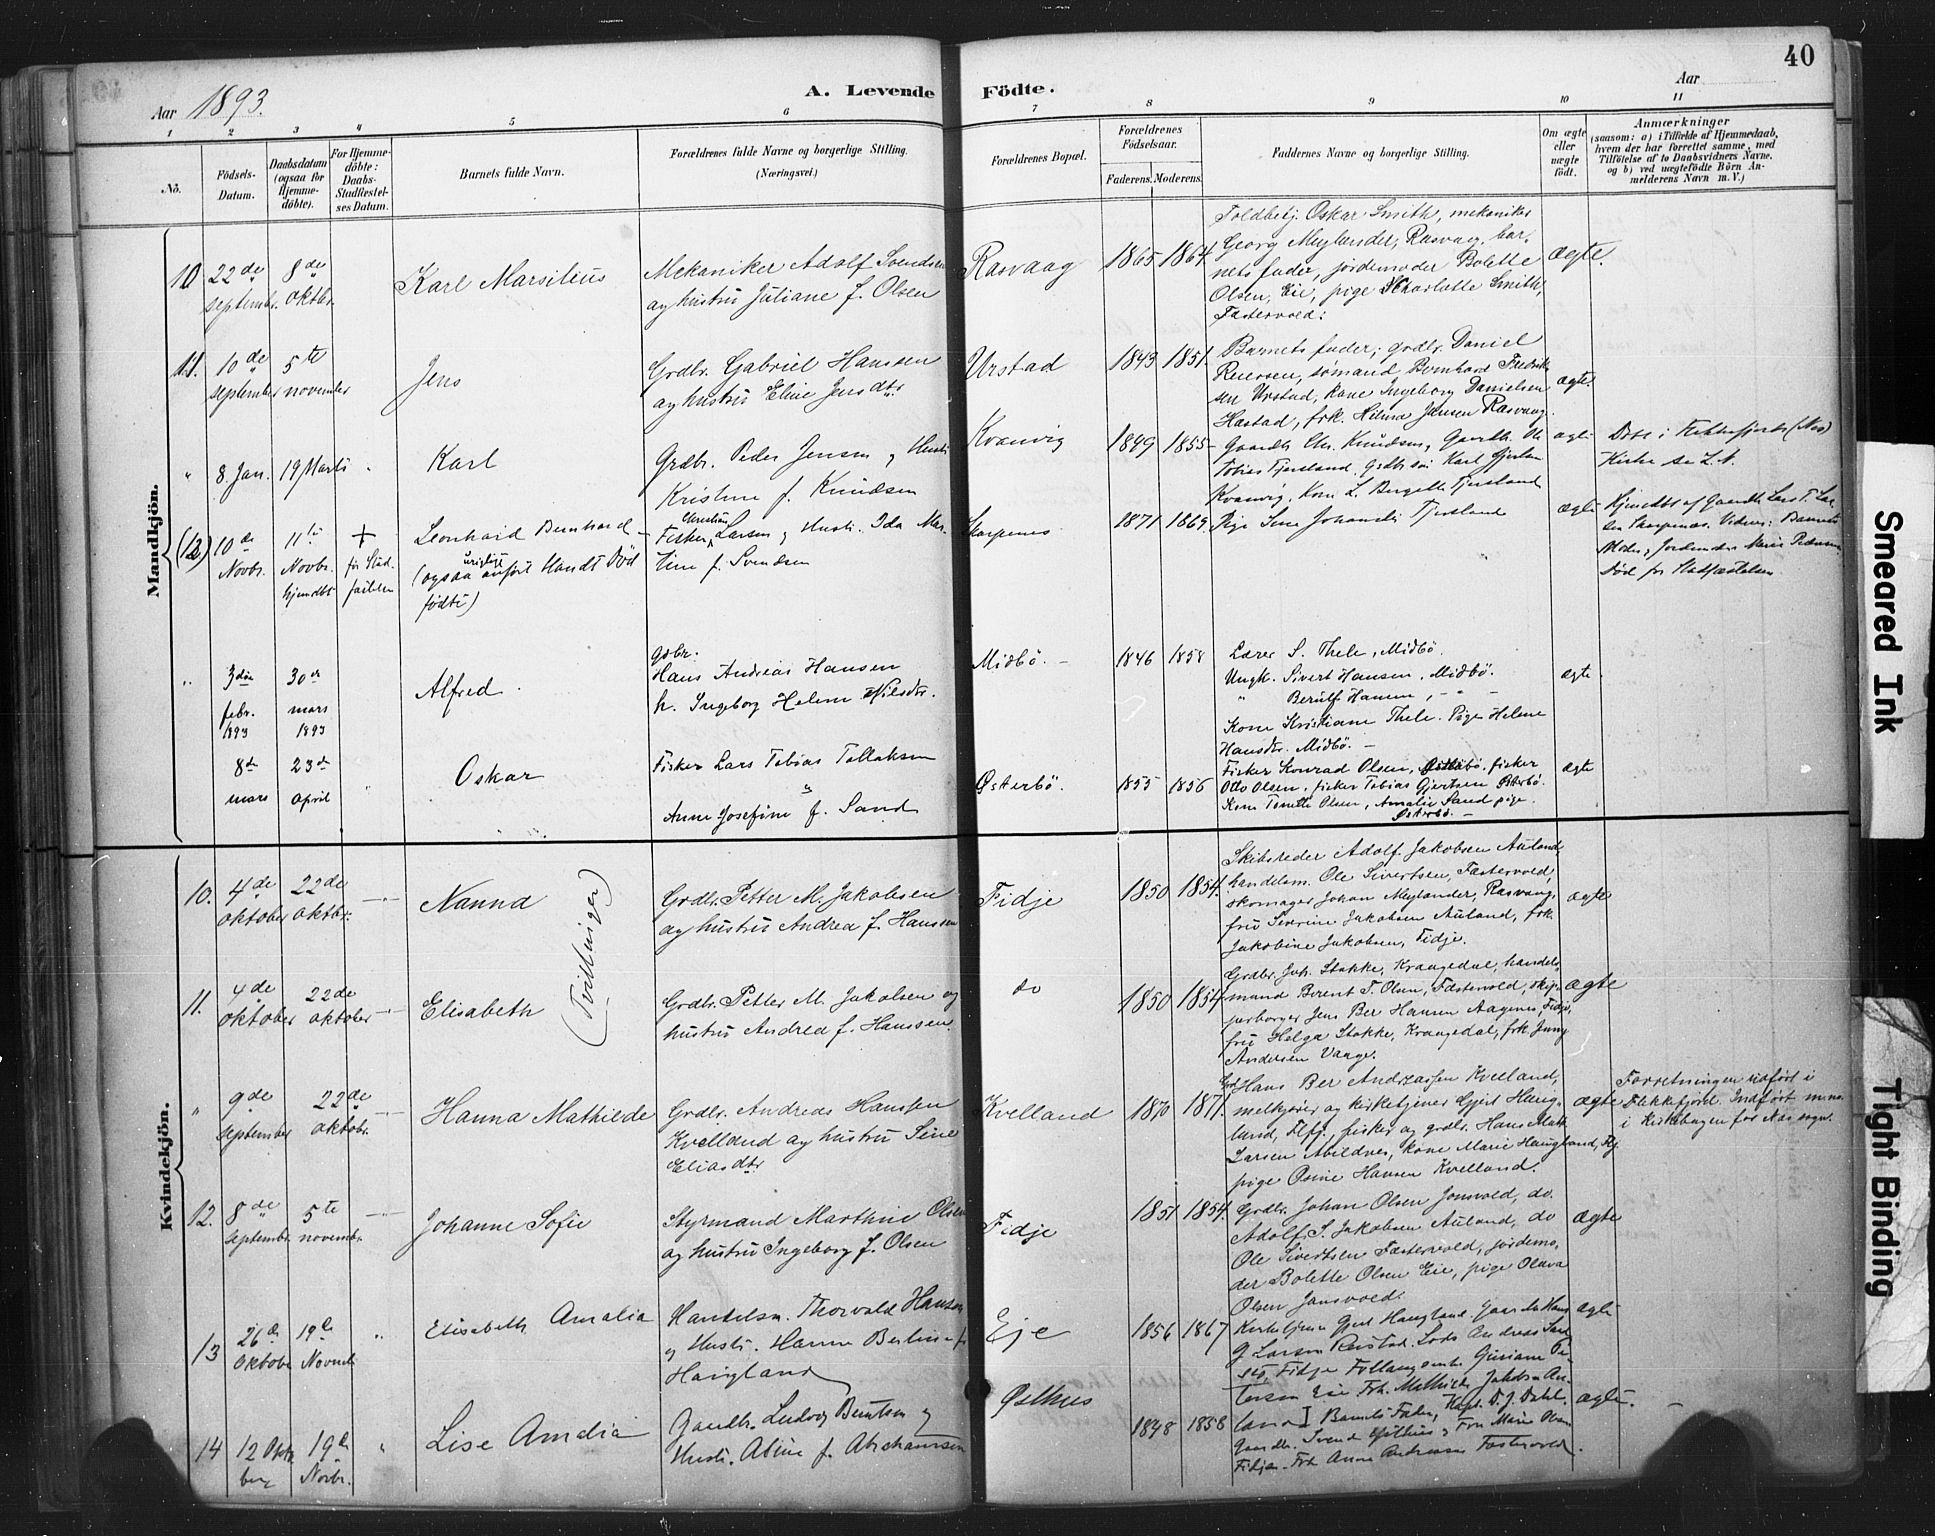 40
Aar 1893.
A. Levende Födte.
Aar
1 2 3 4 5 6 7 8 9 10 11
No.
Födsels-Datum.
Daabsdatum (ogsaa for Hjemme-döbte).
For Hjemme-döbte: Daabs-Stadfæstel-ses Datum.
Barnets fulde Navn.
Forældrenes fulde Navne og borgerlige Stilling. (Næringsvei.)
Forældrenes Bopæl.
Forældrenes Födselsaar.
Faderens. Moderens.
Faddernes Navne og borgerlige Stilling.
Om ægte eller uægte födt.
Anmærkninger
(saasom: a) i Tilfælde af Hjemmedaab,
hvem der har forrettet samme, med
Tilföielse af to Daabsvidners Navne.
og b) ved uægtefödte Börn An-
melderens Navn m. V.)
Mandkjön.
10 22de septembr. 8de oktbr.
Karl Marsilius
Mekaniker Adolf Svendsen
og hustru Juliane f. Olsen
Rasvaag 1865 1864.
Toldbetj. Oskar Smith, mekaniker
Georg Meylænder, Rasvaag, bar-
nets fader, jordemoder Bolette
Olsen, Eie, pige Charlotte Smith,
Fastervold.
ægte.
11. 10de september 5te november
Jens
Grdbr. Gabriel Hanssen
og hustru Eline Jensdtr
Urstad 1843 1851.
Barnets fader, grdbr. Daniel
Reiersen, sömand Bernhard Fredrik-
sen Urstad, kone Ingeborg Danielsen
Hastad, frk. Hilma Jensen Rasvaag.
ægte.
" 8 Jan. 19 Marts "
Karl
Grdbr. Peder Jensen og Hustr.
Kristine f. Knudsen
Kvanvig 1849 1855
Gaardb. Chr. Knudsen, Gaardb. Ole
Tobias Tjersland, Grdbr. sön Karl
Kvanvig, Kone L. Bergette Tjersland
Pige Sene Johansd. Tjersland
ægte
Döbt i Flekkefjords (Nes)
Kirke se L. A.
(12) 10de Novbr. 11te Novbr. hjemdbt + för Stad-fæstelsen
Leonhard Bernhard
(ogsaa urigtigt anfört blandt Död
födte)
Fisker Christian Larsen og Hustr. Ida Mar-
tine f. Svendsen
Skarpenes 1871 1869.
ægte
Hjemdöbt af Gaardb. Lars T. Lar-
sen Skarpenes. Vidner: Barnets
Moder, Jordemoder Marie Pedersen
Död för Stadfæstelsen.
" 3die febr. 1893 30te mars 1893
Alfred.
Gdbr.
Hans Andreas Hansen
h. Ingeborg Helene Nilsdtr.
Midbö. 1846 1858
Lærer S. Thele, Midbö.
Ungk. Sivert Hansen, Midbö.
" Berulf Hansen, - " -
Kone Kristiane Thele. Pige Helene
Hansdtr. Midbö.
ægte
8de mars 23de april "
Oskar
Fisker Lars Tobias Tollaksen
"
Anne Josefine f. Sand
Østerbö. 1855 1856
Fisker Konrad Olsen, Østerbö, fisker
Otto Olsen, fisker Tobias Gjertsen Østerbö.
Kone Tonette Olsen, Amalie Sand pige.
Østerbö.
ægte
Kvindekjön.
10. 4de oktober 22de oktbr.
Nanna
(Tvillinger)
Grdbr. Petter M. Jakobsen
og hustru Andrea f. Hanssen
Fidje 1850 1854.
Skibsreder Adolf Jakobsen Auland,
handelsm. Ole Sivertsen, Fastervold,
skomager Johan Meylænder, Rasvaag,
fru Severine Jakobsen Auland, frk.
Jakobine Jakobsen, Fidje.
ægte
11. 4de oktober 22de oktober
Elisabeth
Grdbr. Petter M. Jakobsen og
hustru Andrea f. Hanssen.
do 1850 1854
Grdbr. Joh. Stokke, Krangedal, handels-
mand Berent T. Olsen, Fastervold, skip-
perborger Jens Ber Hansen Aagenes Fidje,
fru Helga Stokke, Krangedal, frk Jung
Andersen Vaage.
ægte
" 9de september 22de oktobr.
Hanna Mathilde
Grdbr. Andreas Hanssen
Kvelland og hustru Sine
Eliasdtr
Kvelland 1870 1871.
Grd. Hans Ber Andreassen Kvelland,
melkejörer og kirketjener Gjert Haug-
land, Flfj., fisker og grdbr. Hans Math
Larsen Abildnes, kone Marie Haugland, Flfj.
pige Osine Hansen Kvelland.
ægte
Forretningen udfört i
Flekkefjord. Indfört m. no.
i Kirkebogen for Nes sogn.
12. 8de septembr. 5te novembr.
Johanne Sofie
Styrmand Marthin Olsen
og hustru Ingeborg f. Olsen
Fidje 1851 1854.
Grdbr. Johan Olsen Jonsvold, do.
Adolf S. Jakobsen Auland, do
Ole Sivertsen Fastervold, jordemo-
der Bolette Olsen Eie, pige Olava
Olsen Jonsvold.
ægte
13 26de Oktober 19de Novmb. "
Elisabeth Amalia
Handelsm. Thorvald Hansen
og Hustr. Hanne Bertine f.
Haugland
Eje 1856 1867
Kirketjener Gjert Haugland. Gaardb Hans
G Larsen Urstad. Lods Andreas
Fidje. Guriane Pe-
tersen Eie. Frk. Mathilde Jakobsen Au-
land
ægte
14 12 Oktober 19de Novbr. "
Lise Amalia
Gaardbr. Ludvig Berntsen og
Hustr. Abine f. Abrahamsen
Østhus 1848 1858
Barnets Fader, Kapt. D. J. Dahl.
Gaardbr. Svend Østhus, Fru Marie Olsen
Fidje. Frk Anna Andreasen Fastervold.
ægte.
Smeared Ink
Tight Binding